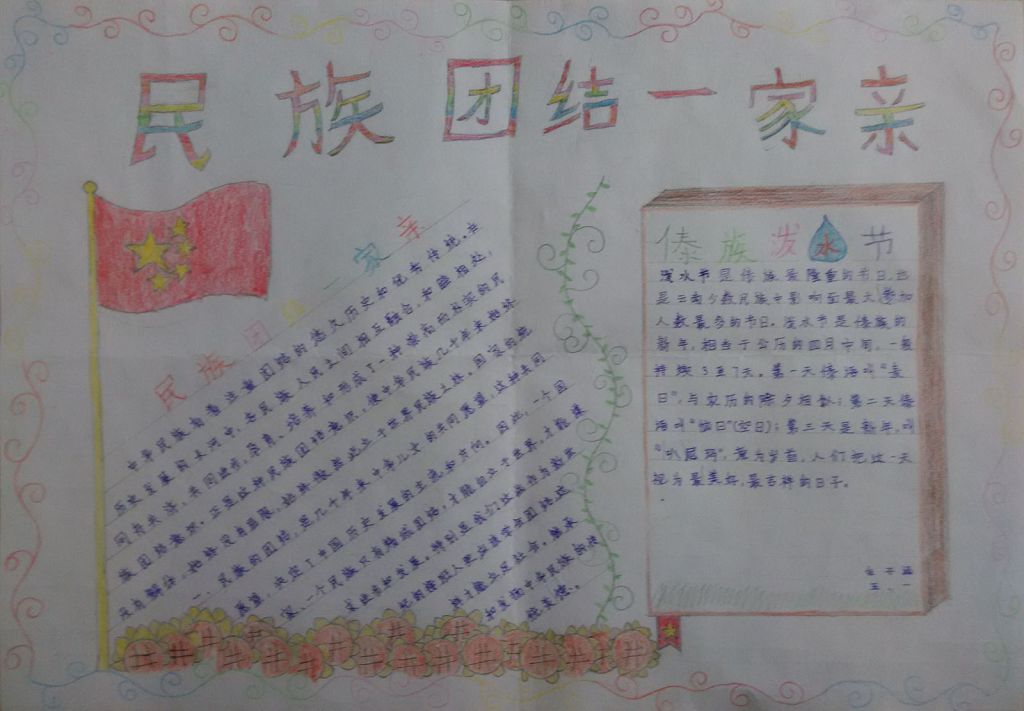 民族团结一家亲
民族团结一家亲
中华民族有着注重团结的悠久历史和优秀传统。在
历史发展的长河中,各民族人民之间相互融合,和睦相处,
同舟共济,共同进步,孕育、培养和形成了一种崇高而朴实的民
族团结意识。正是这种民族团结意识,使中华民族几千年来始终
没有解体,始终没有显限,始终傲然屹立于世界民族之林。国家的统
一、民族的团结,是几千年来中华儿女的共同愿望,这种共同
愿望,决定了中国历史发展的主流和方向。因此,一个国
家、一个民族只有精诚团结,才能自立于世界,才能谋
求进步和发展。特别是我们这些作为新世
纪的接班人更应该学会团结这
样才能立足社会。继承
和发扬中华民族的传
统美德。
傣族泼水节
泼水节是傣族最隆重的节日,也
是云南少数民族中影响面最大,参加
人数最多的节日。泼水节是傣族的
新年,相当于公历的四月中旬,一般
持续3至7天。第一天傣语叫“麦
日”,与农历的除夕相似;第二天傣
语叫“恼日”(空日);第三天是新年,叫
“叭网玛”,意为岁首,人们把这一天
视为最美好,最吉祥的日子。